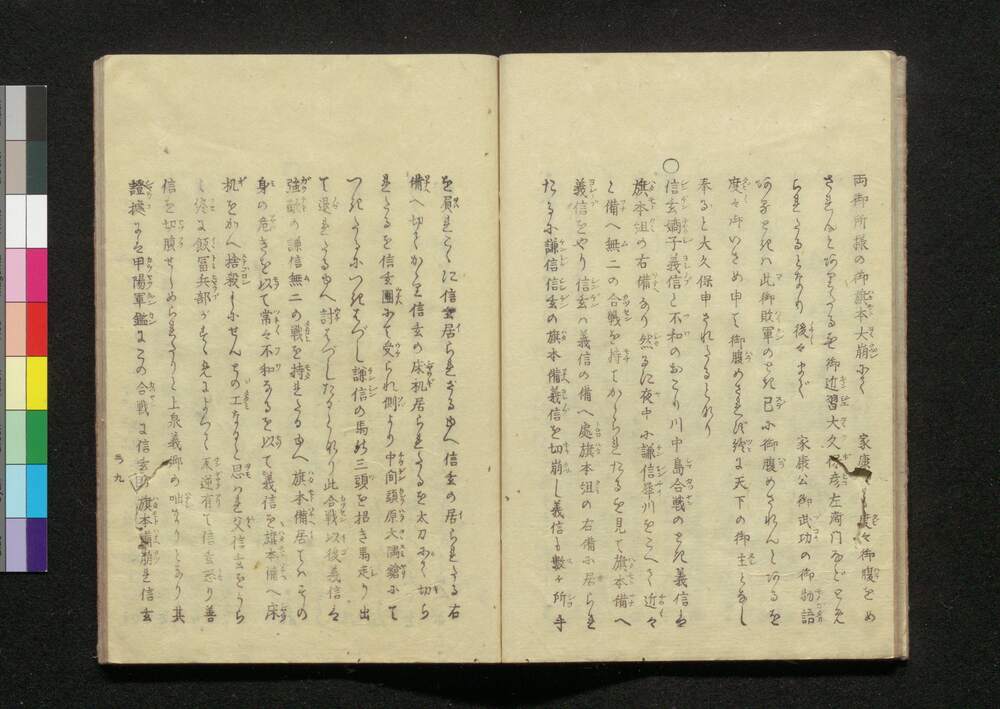 両御所様の御旗本大崩にて　家康公も度々御腹をめ
されんとありたるを御近習大久保彦左衛門などとゞめ
られたるとなり後々まで　家康公御武功の御物語
ある子ときハ此御敗軍のとき已に御腹めされんとあるを
度々御いさめ申て御腹めさせず終に天下の御主となし
奉ると大久保申されたるとなり
○信玄嫡子義信と不和のおこり川中島合戦のとき義信は
旗本組の右備なり然るに夜中に謙信犀川をこへて近々
と備へ無二の合戦を持てかゝられたるを見て旗本備へ
義信をやり信玄ハ義信の備へ處旗本組の右備に居られ
たるに謙信信玄の旗本備義信を切崩し義信も数ヶ所手
を負れこゝに信玄居られざるゆへ信玄の居られたる右
備へ切てかゝり信玄の床机居られたるを太刀にて切ら
れたるを信玄團にて受られ側より中間頭原大隅鎗にて
つきたるにつきはづし謙信の馬の三頭を招き馬走り出
て退れたるゆへ討はづしたるとなり此合戦以後義信は
強敵の謙信無二の戦を持れたるゆへ旗本備居てハその
身の危きを以て常々不和なるを以て義信を旗本備へ床
机をかへ捨殺しにせんとの工なると思はれ父信玄をうら
み終に飯冨兵部がすゝめによつて不逆有て信玄怒り善
信を切腹せしめられたりと上泉義郷の咄なりとあり其
證據にも甲陽軍鑑にこの合戦に信玄の旗本備崩れ信玄